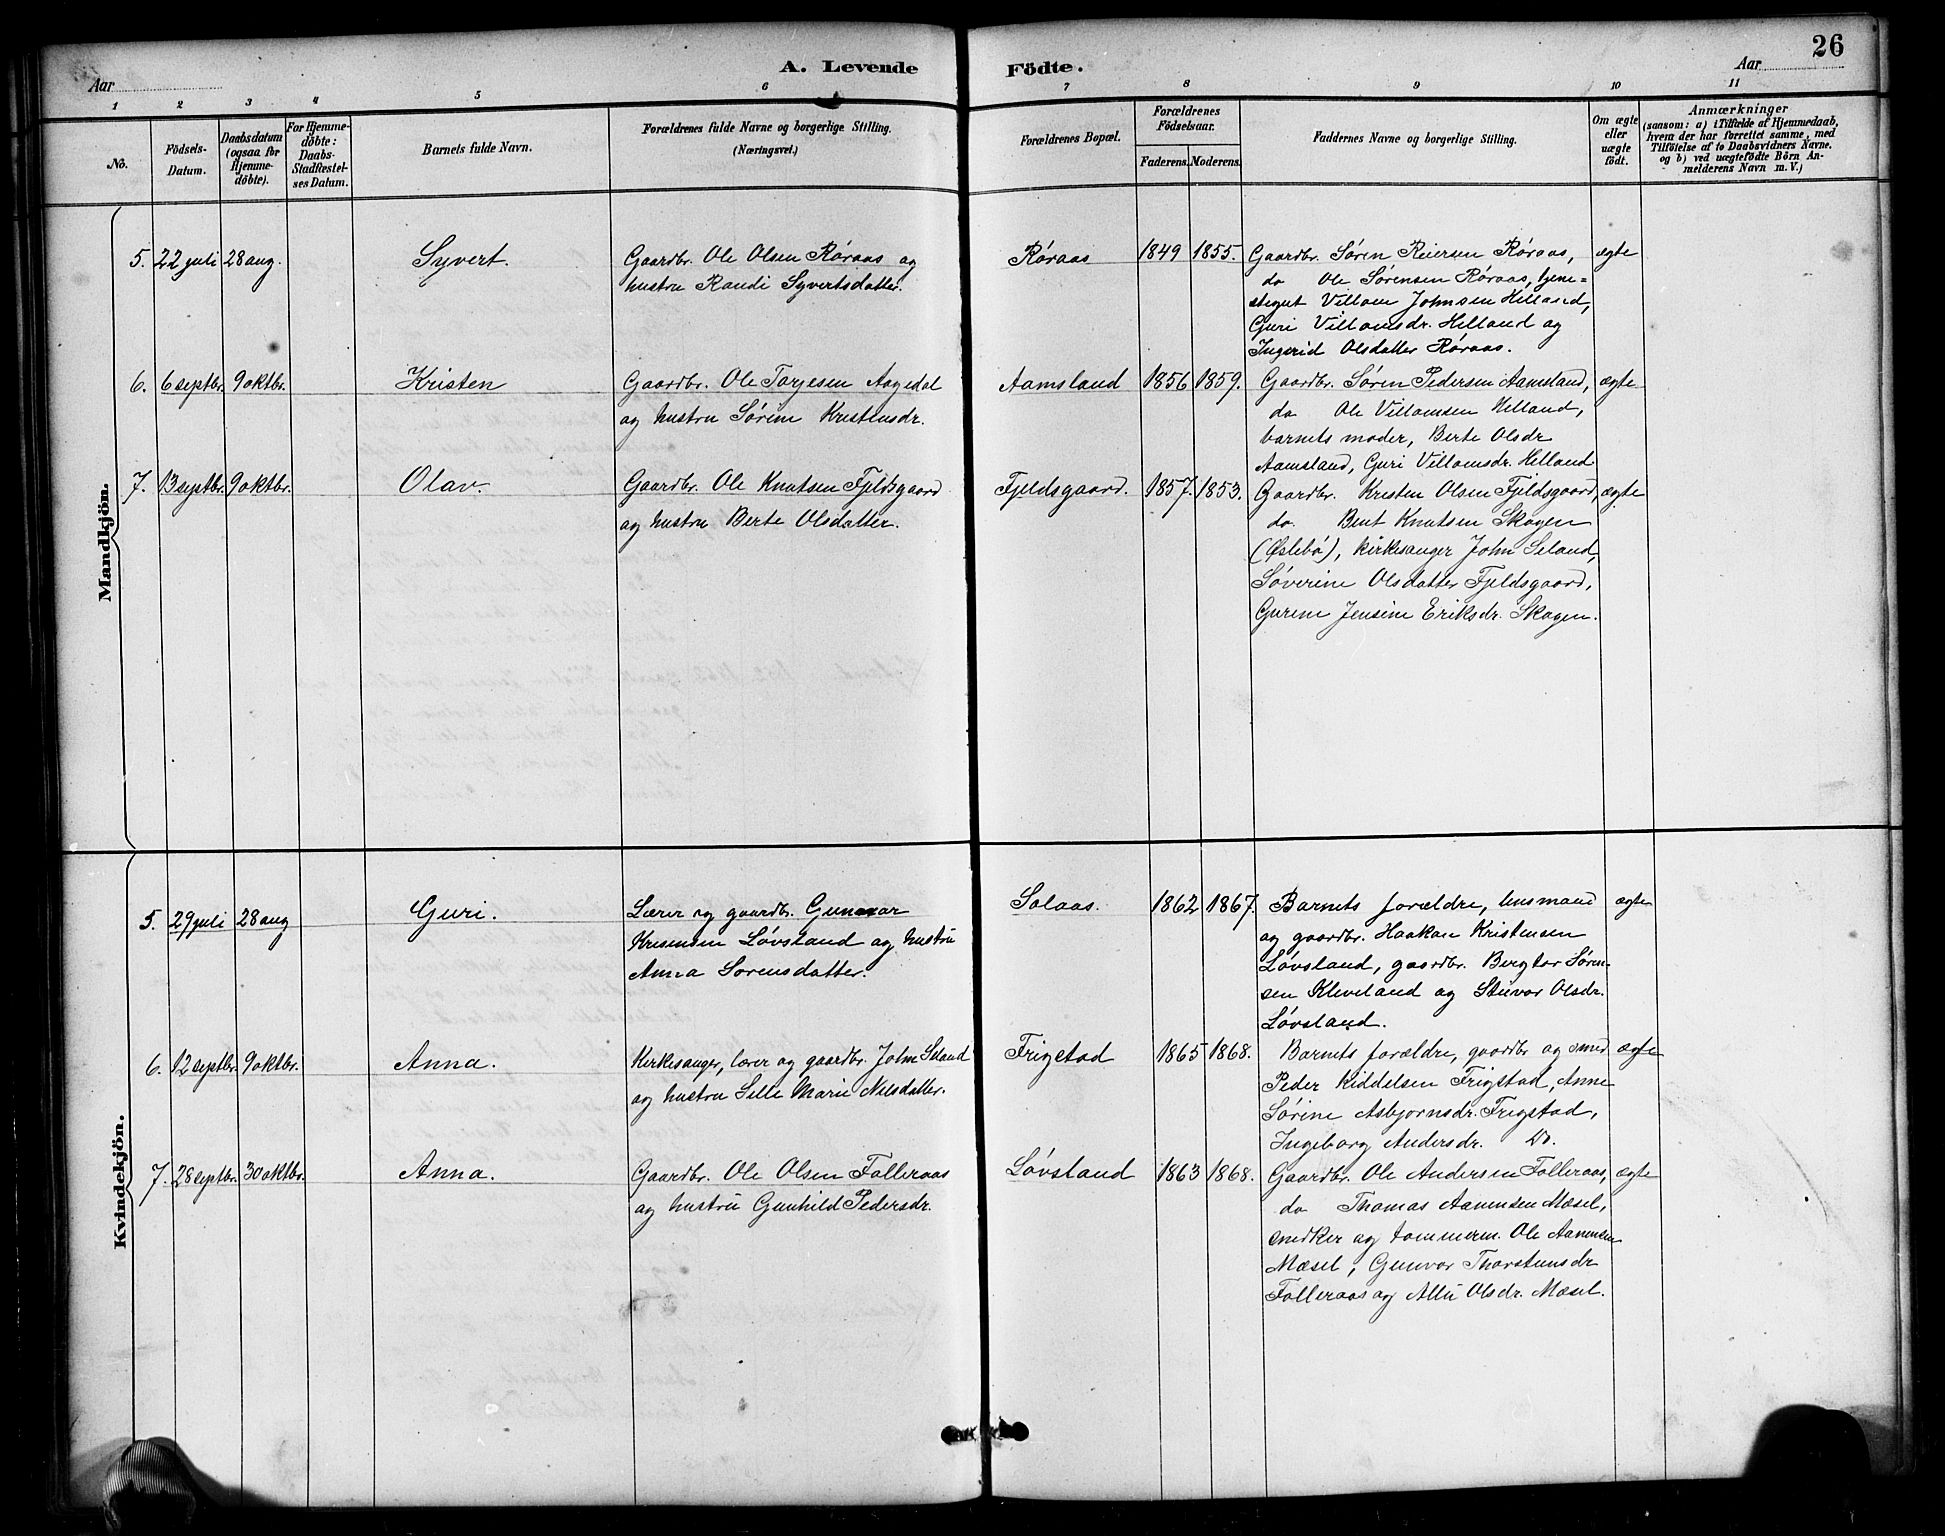 26
A. Levende Födte.
Aar
Aar
1 2 3 4 5 6 7 8 9 10 11
No.
Födsels-Datum.
Daabsdatum (ogsaa for Hjemmedöbte).
For Hjemmedöbte: Daabs-Stadfæstelses Datum.
Barnets fulde Navn.
Forældrenes fulde Navne og borgerlige Stilling.
(Næringsvei.)
Forældrenes Bopæl.
Forældrenes Födselsaar.
Faderens. Moderens.
Faddernes Navne og borgerlige Stilling.
Om ægte eller uægte födt.
Anmærkninger
(saasom: a) i Tilfælde af Hjemmedaab,
hvem der har forrettet samme, med
Tilföielse af to Daabsvidners Navne,
og b) ved uægtefödte Börn An-
melderens Navn m. V.)
Mandkjön.
5. 22 juli 28 aug. Syvert. Gaardbr. Ole Olsen Røraas og Røraas 1849 1855. Gaardbr. Søren Reiersen Røraas, ægte
hustru Randi Syvertsdatter. do Ole Sørensen Røraas, tjene=
stegut Villom Johnsen Helland,
Guri Villomsdr. Helland og
Ingerid Olsdatter Røraas.
6. 6 septbr. 9 oktbr. Kristen Gaardbr. Ole Torjesen Aagedal Aamsland 1856 1859. Gaardbr. Søren Pedersen Aamsland, ægte
og hustru Sørine Kristensdr. do Ole Villomsen Helland,
barnets moder, Berte Olsdr
Aamsland, Guri Villomsdr. Helland
7. 13 septbr. 9 oktbr. Olav. Gaardbr. Ole Knutsen Fjeldsgaard Fjeldsgaard. 1857. 1853. Gaardbr. Kristen Olsen Fjeldsgaard, ægte
og hustru Berte Olsdatter. do. Bent Knutsen Skogen
(Øslebø), kirkesanger John Seland,
Søverine Olsdatter Fjeldsgaard,
Gurine Jensine Eriksdr. Skogen.
Kvindekjön.
5. 29 juli 28 aug Guri. Lærer og gaardbr. Gunvar Solaas. 1862 1867. Barnets forældre, lensmand ægte
Kristensen Løvsland og hustru og gaardbr. Haakon Kristensen
Anna Sorensdatter. Løvsland, gaardbr. Bergtor Søren-
sen Kleveland og Stuvor Olsdr.
Løvsland.
6. 12 septbr. 9 oktbr. Anna. Kirkesanger, lærer og gaardbr. John Seland Frigstad 1865 1868. Barnets forældre, gaardbr og smed ægte
og hustru Sille Marie Nilsdatter. Peder Kiddelsen Frigstad, Anne
Sørine Asbjørnsdr. Frigstad,
Ingeborg Andersdr. Do.
7. 28 septbr. 30 oktbr. Anna. Gaardbr. Ole Olsen Folleraas Løvsland 1863 1868. Gaardbr. Ole Andersen Folleraas, ægte
og hustru Gunhild Pedersdr. do Thomas Aanensen Mæsel,
snedker og tømmerm. Ole Aanensen
Mæsel, Gunvor Thorstensdr
Folleraas og Alli Olsdr. Mæsel.